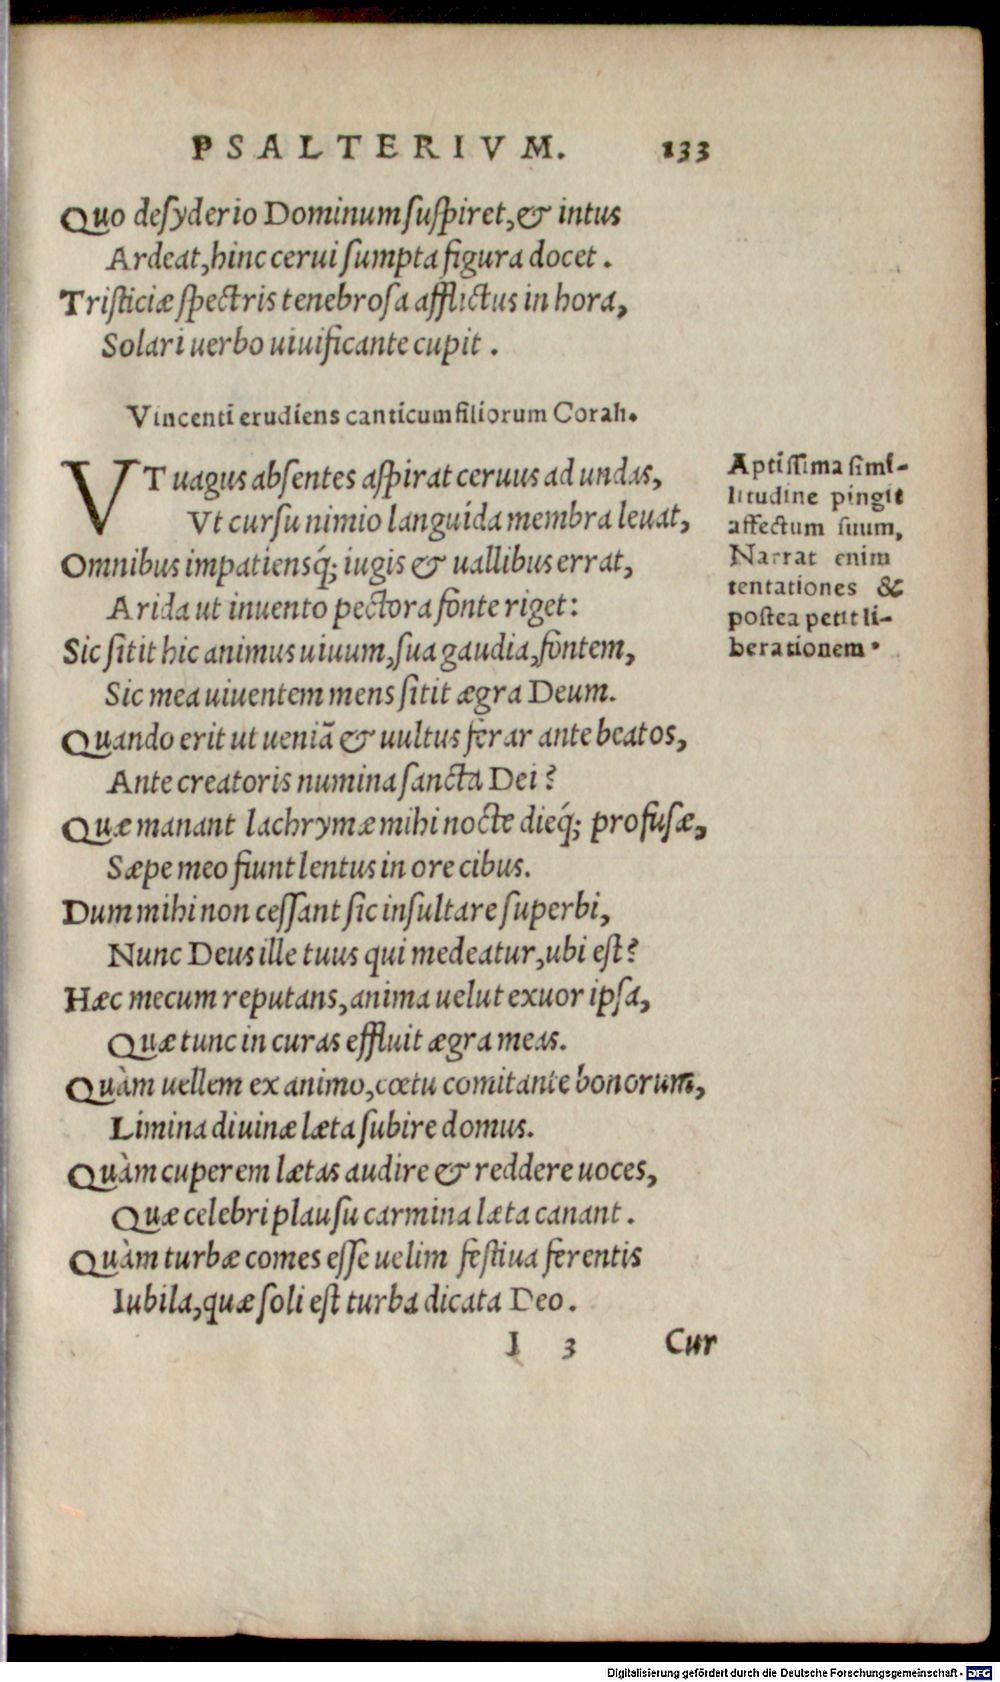 PSALTERIVM. 133
Quo desyderio Dominum suspiret, & intus
Ardeat, hinc cerui sumpta figura docet.
Tristiciæ spectris tenebrosa afflictus in hora,
Solari uerbo uiuificante cupit.
Vincenti erudiens canticum filiorum Corah.
VT uagus absentes aspirat ceruus ad undas,
Vt cursu nimio languida membra leuat,
Omnibus impatiensq́; iugis & uallibus errat,
Arida ut inuento pectora fonte riget:
Sic sitit hic animus uiuum, sua gaudia, fontem,
Sic mea uiuentem mens sitit ægra Deum.
Quando erit ut ueniã & uultus ferar ante beatos,
Ante creatoris numina sancta Dei?
Quæ manant lachrymæ mihi nocte dieq́; profusæ,
Sæpe meo fiunt lentus in ore cibus.
Dum mihi non cessant sic insultare superbi,
Nunc Deus ille tuus qui medeatur, ubi est?
Hæc mecum reputans, anima uelut exuor ipsa,
Quæ tunc in curas effluit ægra meas.
Quàm uellem ex animo, cœtu comitante bonorum,
Limina diuinæ læta subire domus.
Quàm cuperem lætas audire & reddere uoces,
Quæ celebri plausu carmina læta canant.
Quàm turbæ comes esse uelim festiua ferentis
Iubila, quæ soli est turba dicata Deo.
I 3 Cur
Aptissima simi-
litudine pingit
affectum suum,
Narrat enim
tentationes &
postea petit li-
berationem.
Digitalisierung gefördert durch die Deutsche Forschungsgemeinschaft - DFG